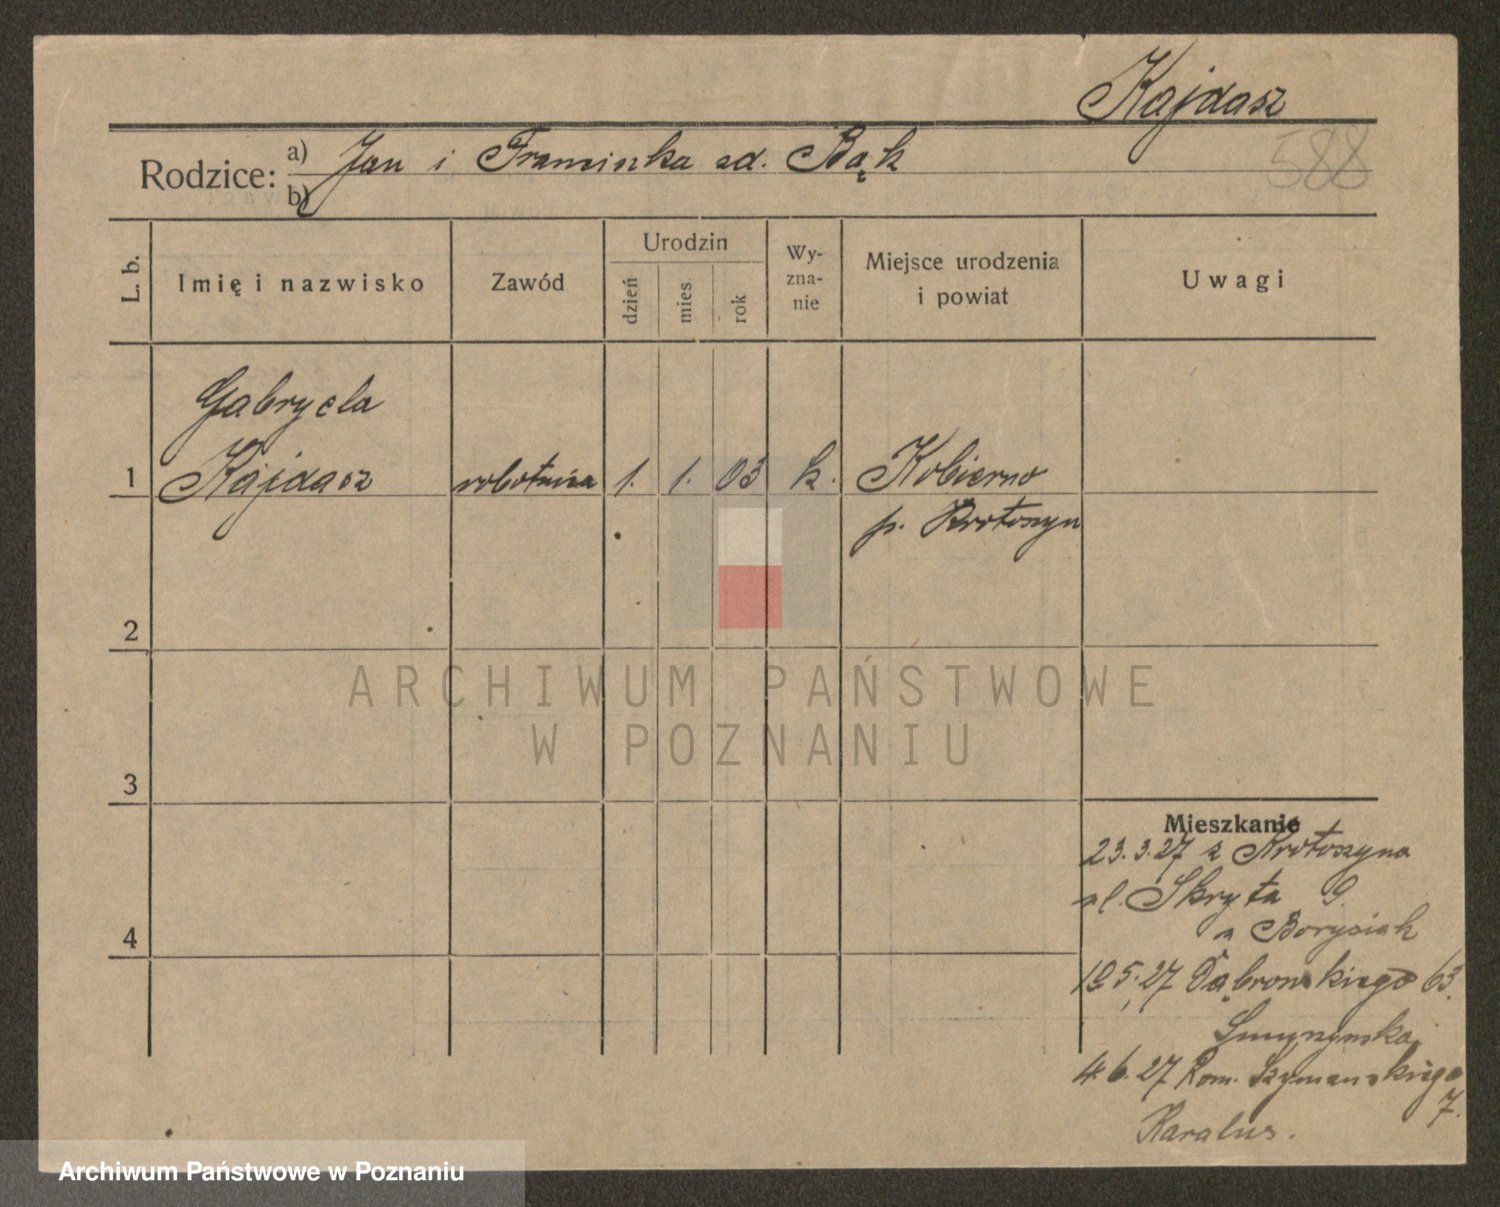 Kajdasz
588
Rodzice: a) Jan i Franciszka zd. Bąk
b)
L. b. Imię i nazwisko Zawód Urodzin dzień mies. rok Wy-zna-nie Miejsce urodzenia i powiat Uwagi
Gabryela
1 Kajdasz robotnica 1. 1. 03 k. Kobierno
p. Krotoszyn
2
3
4
Mieszkanie
23.3.27 z Krotoszyna
ul. Skryta 9
u Borysiak
19.5.27 Dąbrowskiego 63.
4.6.27 Rom. Szymańskiego
7.
Karalus.
ARCHIWUM PAŃSTWOWE
W POZNANIU
Archiwum Państwowe w Poznaniu